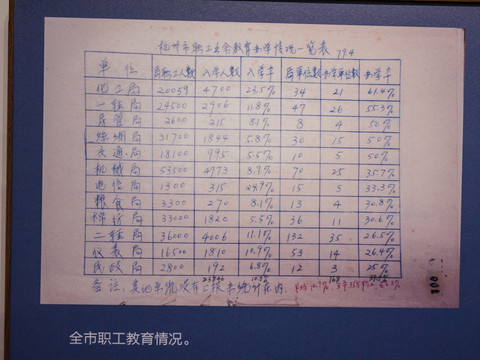 杭州市职工业余教育办学情况一览表 79.4
单位 局职工人数 入学人数 入学率 局单位数 办学单位数 办学率
化工局 20039 4700 23.5% 34 21 61.4%
一轻局 24500 2906 11.8% 47 26 55.3%
房管局 2600 215 8.1% 8 4 50%
丝绸局 31700 1844 5.8% 30 15 50%
交通局 18100 995 5.5% 10 5 50%
机械局 53500 4773 8.9% 70 25 35.7%
电信局 1300 315 24.9% 15 5 33.3%
粮食局 3300 270 8.1% 13 4 30.8%
棉纺局 33000 1820 5.5% 36 11 30.6%
二轻局 36000 4006 11.1% 132 35 26.5%
仪表局 16500 1810 10.9% 53 14 26.4%
民政局 2800 192 6.8% 12 3 25%
备注：其他系统没有上报未统计在内。
100
全市职工教育情况。